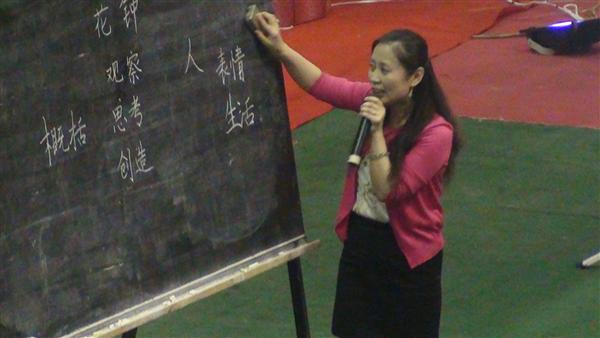 花钟
观察
人 表情
概括 思考
生活
创造